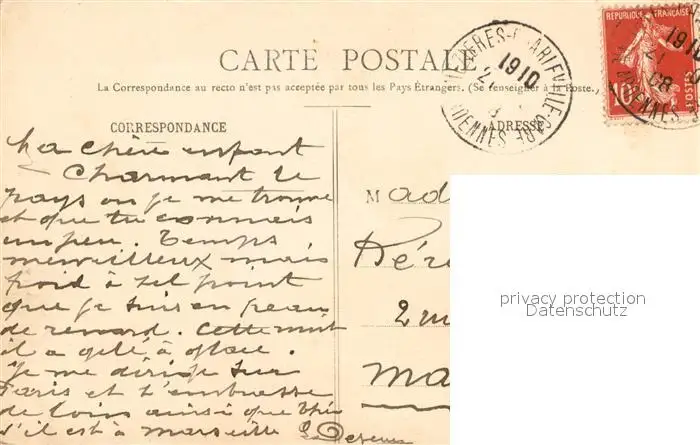 RÉPUBLIQUE FRANÇAISE
POSTES
10
MÉZIÈRES-CHARLEVILLE-GARE
ARDENNES
1910
21
CARTE POSTALE
La Correspondance au recto n'est pas acceptée par tous les Pays Étrangers. (Se renseigner à la Poste.)
CORRESPONDANCE
ADRESSE
Ma chère enfant
Charmant le
pays où je me trouve
et que tu connais
un peu. Temps
merveilleux mais
froid à tel point
que je suis en peau
de renard. Cette nuit
il a gelé à glace.
Je me dirige sur
Paris et t'embrasse
de loin ainsi que
s'il est à Marseille
Mad
2
Ma
privacy protection
Datenschutz